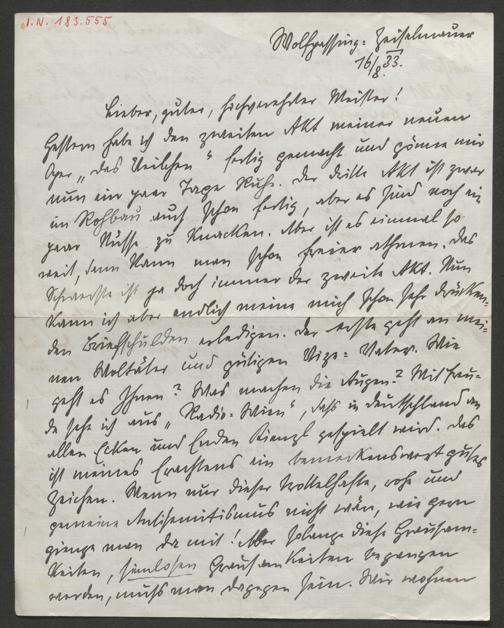 I.N. 183.555
Wolfpassing-Zeiselmauer
16/8. 33.
Lieber, guter, hochverehrter Meister!
Gestern habe ich den zweiten Akt meiner neuen
Oper „Das Veilchen“ fertig gemacht und gönne mir
nun ein paar Tage Ruhe. Der dritte Akt ist zwar
im Rohbau auch schon fertig, aber es sind noch ein
paar Nüsse zu knacken. Aber ist es einmal so
weit, dann kann man schon freier athmen. Das
Schwerste ist ja doch immer der zweite Akt. Nun
kann ich aber endlich meine mich schon sehr drücken-
den Briefschulden erledigen. Der erste geht an mei-
nen Wohltäter und gütigen Vize-Vater. Wie
geht es Ihnen? Was machen die Augen? Mit Freu-
de sehe ich aus „Radio-Wien“, daß in Deutschland an
allen Ecken und Enden Kienzl gespielt wird. Das
ist meines Erachtens ein bemerkenswert gutes
Zeichen. Wenn nur dieser trottelhafte, rohe und
gemeine Antisemitismus nicht wäre, wie gern
ginge man da mit! Aber solange diese Grausam-
keiten, sinnlosen Grausamkeiten begangen
werden, muß man dagegen sein. Wir wohnen